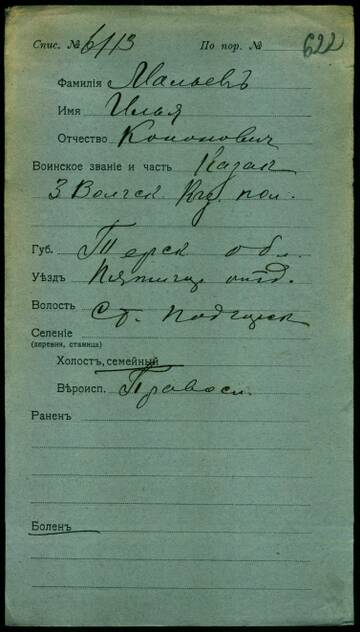 Спис. № 6113 По пор. № 622
Фамилія Мальевъ
Имя Илья
Отчество Кононович
Воинское званіе и часть Казак
3 Волгск. пол.
Губ. Терск обл.
Уѣздъ отд.
Волость Ст.
Селеніе
(деревня, станица)
Холостъ, семейный
Вѣроисп. Правосл.
Раненъ
Боленъ